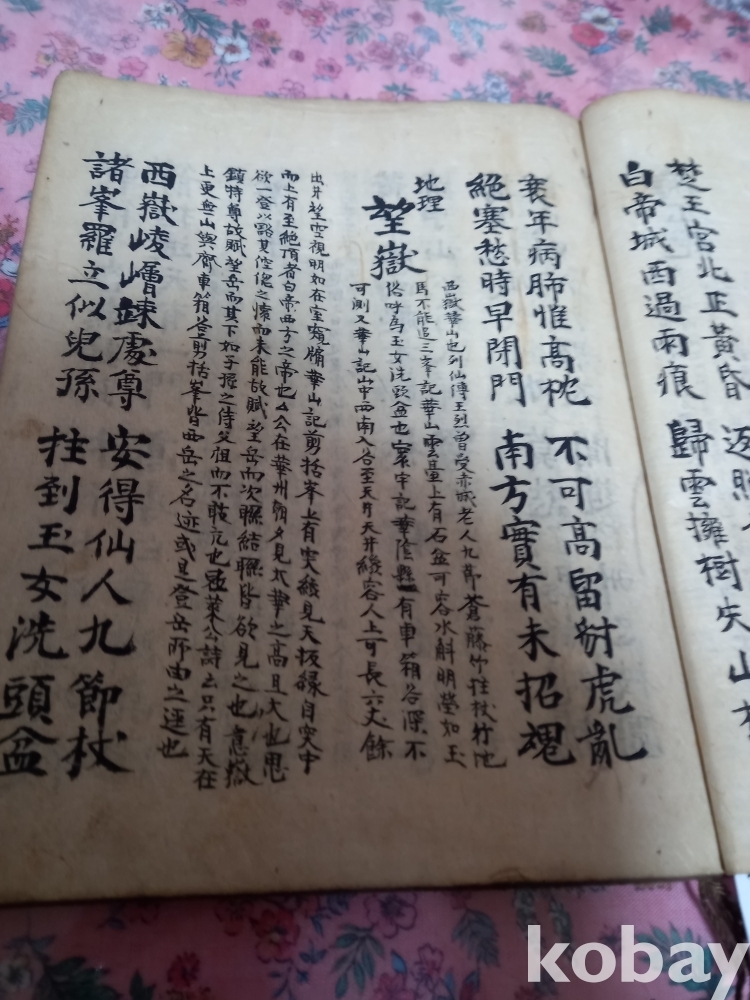 楚王宮北正黃昏 返照
白帝城西過雨痕 歸雲擁樹失山村
衰年病肺惟高枕 不可高留豺虎亂
絕塞愁時早閉門 南方實有未招魂
地理
望嶽
西嶽華山也列仙傳王烈曾受赤城老人九節蒼藤竹拄杖竹池
馬不能追三峯記華山雲臺上有石盆可容水斛明瑩如玉
俗呼爲玉女洗頭盆也寰宇記華陰縣有車箱谷深不
可測又華山記山中西南入谷至天井天井纔容人上可長六丈餘
出井望空視明如在室窺牖華山記剪括峯上有突纔見天扳緣自突中
而上有至絕頂者白帝西方之帝也公在華州朝夕見太華之高且大也思
欲一登以豁其倥傯之懷而未能故賦望岳而次聯結聯皆欲見之也意嶽
鎮特尊故賦望岳而其下如子孫之侍父祖而不敢亢也冦萊公詩云只有天在
上更無山與齊車箱谷剪括峯皆西岳之名迹或是登岳所由之逕也
西嶽崚嶒竦處尊 安得仙人九節杖
諸峯羅立似兒孫 拄到玉女洗頭盆
kobay